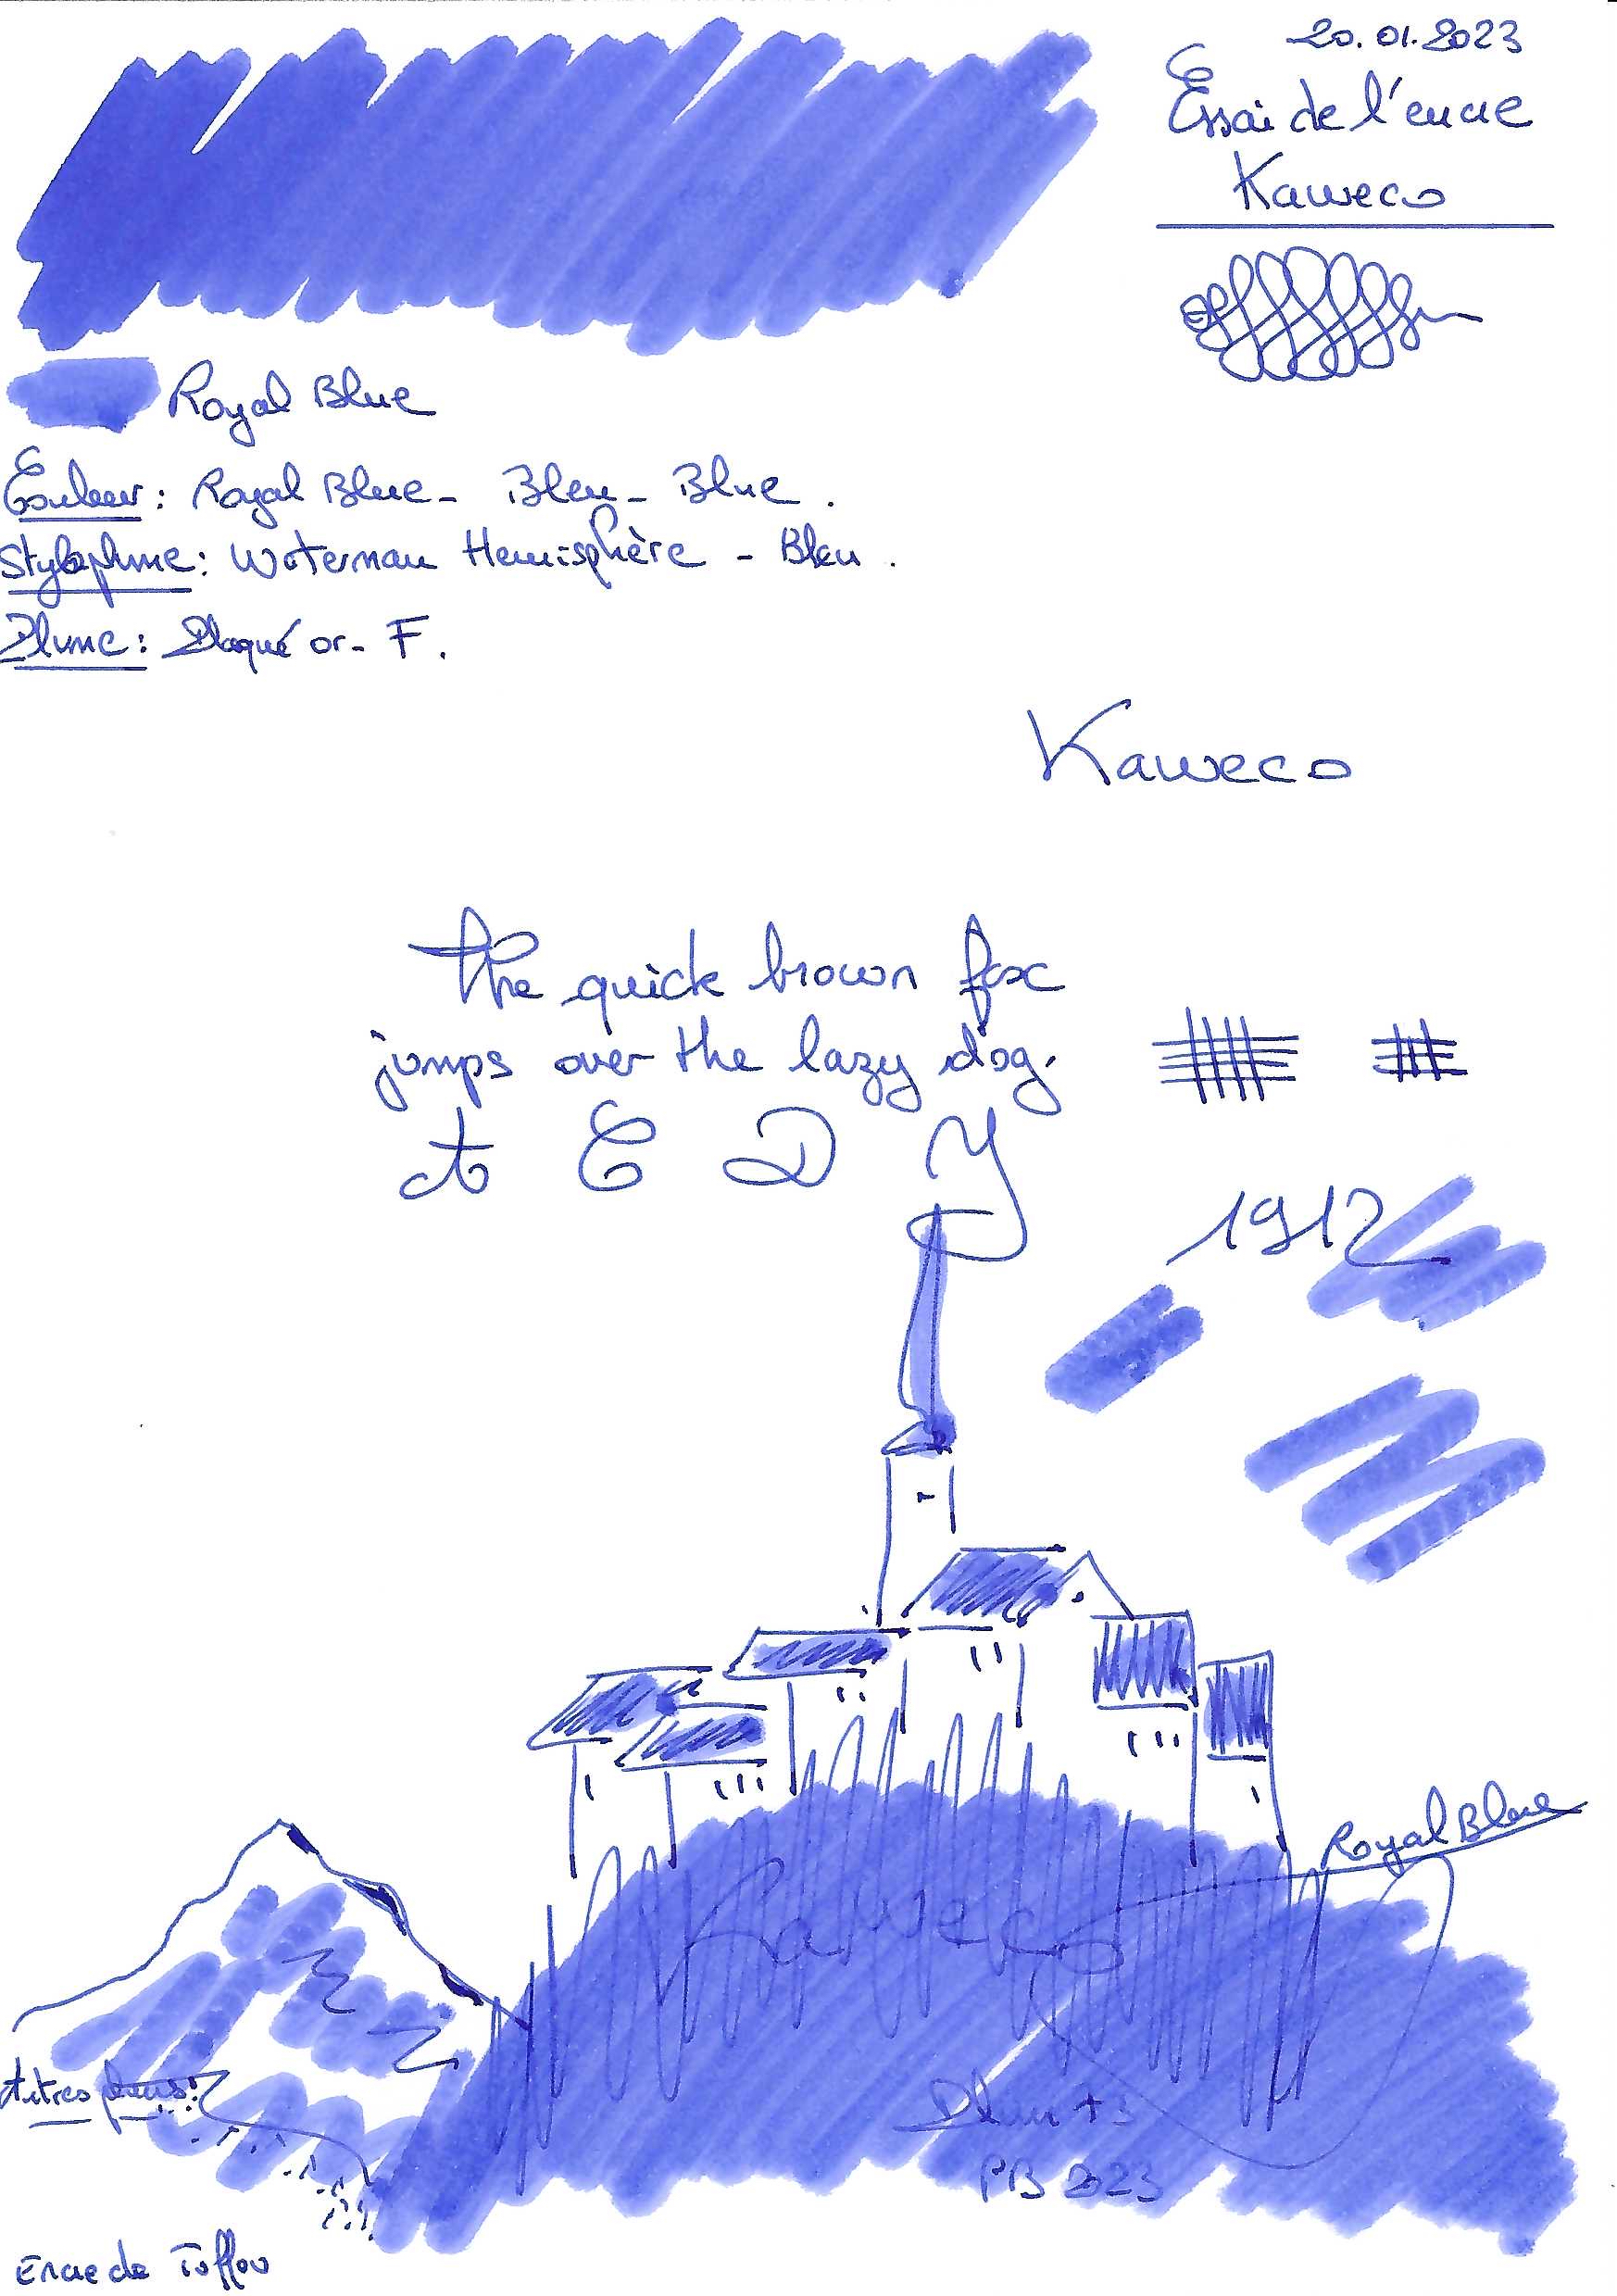 20.01.2023
Essai de l'encre
Kaweco
Royal Blue
Couleur: Royal Blue - Bleu - Blue.
Stylo plume: Waterman Hemisphère - Bleu.
Plume: Plaqué or - F.
Kaweco
The quick brown fox
jumps over the lazy dog.
A C D Y
1912
Royal Blue
Kaweco
Autres
PB 2023
Encre de